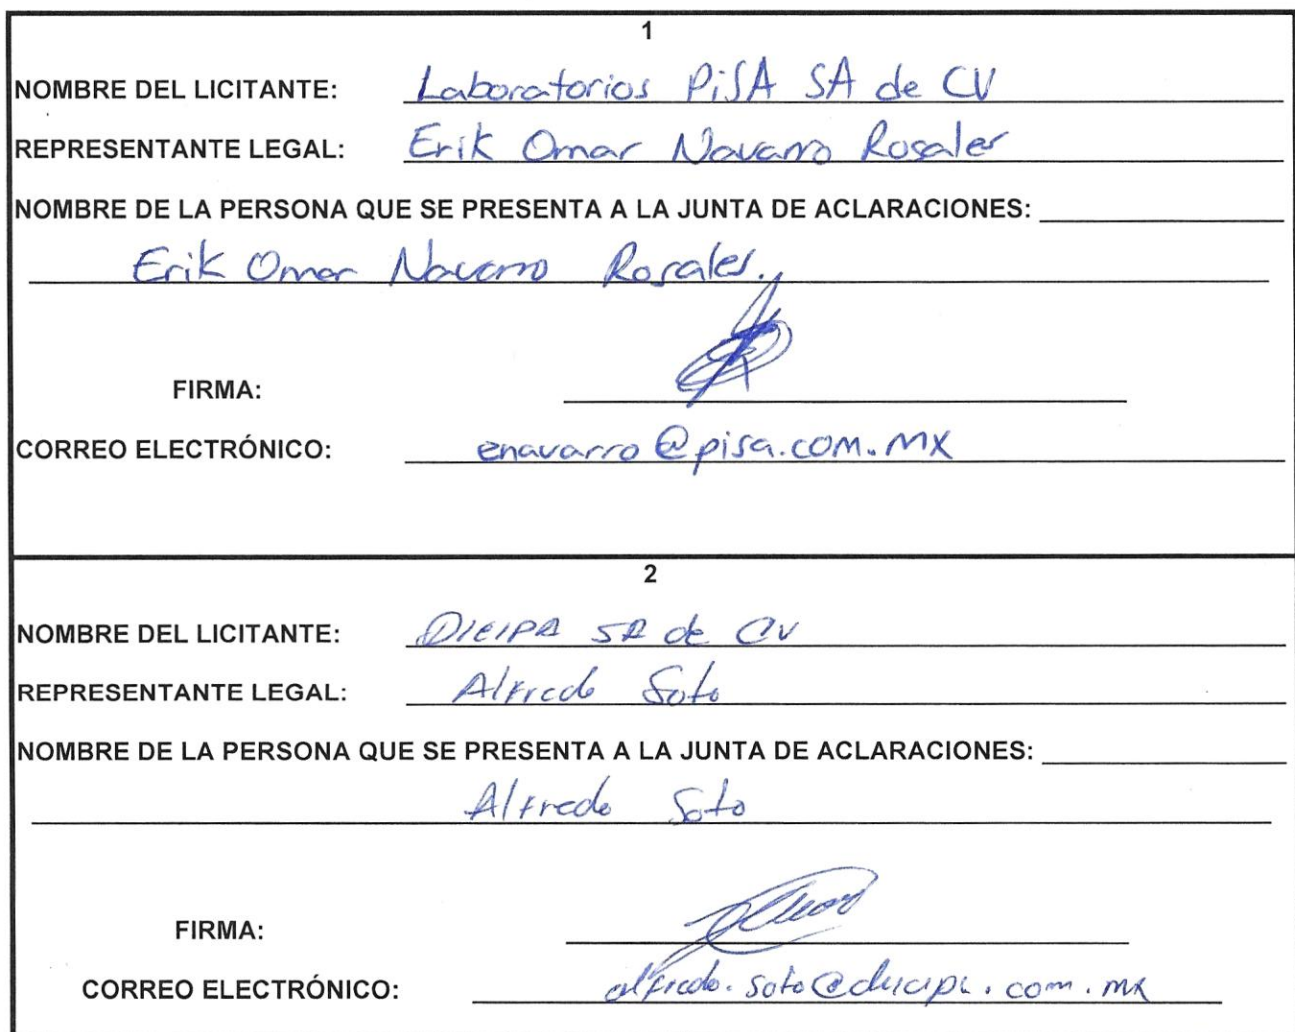 1
NOMBRE DEL LICITANTE: Laboratorios PiSA SA de CV
REPRESENTANTE LEGAL: Erik Omar Navarro Rosales
NOMBRE DE LA PERSONA QUE SE PRESENTA A LA JUNTA DE ACLARACIONES:
Erik Omar Navarro Rosales.
FIRMA:
CORREO ELECTRÓNICO: enavarro@pisa.com.mx
2
NOMBRE DEL LICITANTE: DICIPA SA de CV
REPRESENTANTE LEGAL: Alfredo Soto
NOMBRE DE LA PERSONA QUE SE PRESENTA A LA JUNTA DE ACLARACIONES:
Alfredo Soto
FIRMA:
CORREO ELECTRÓNICO: